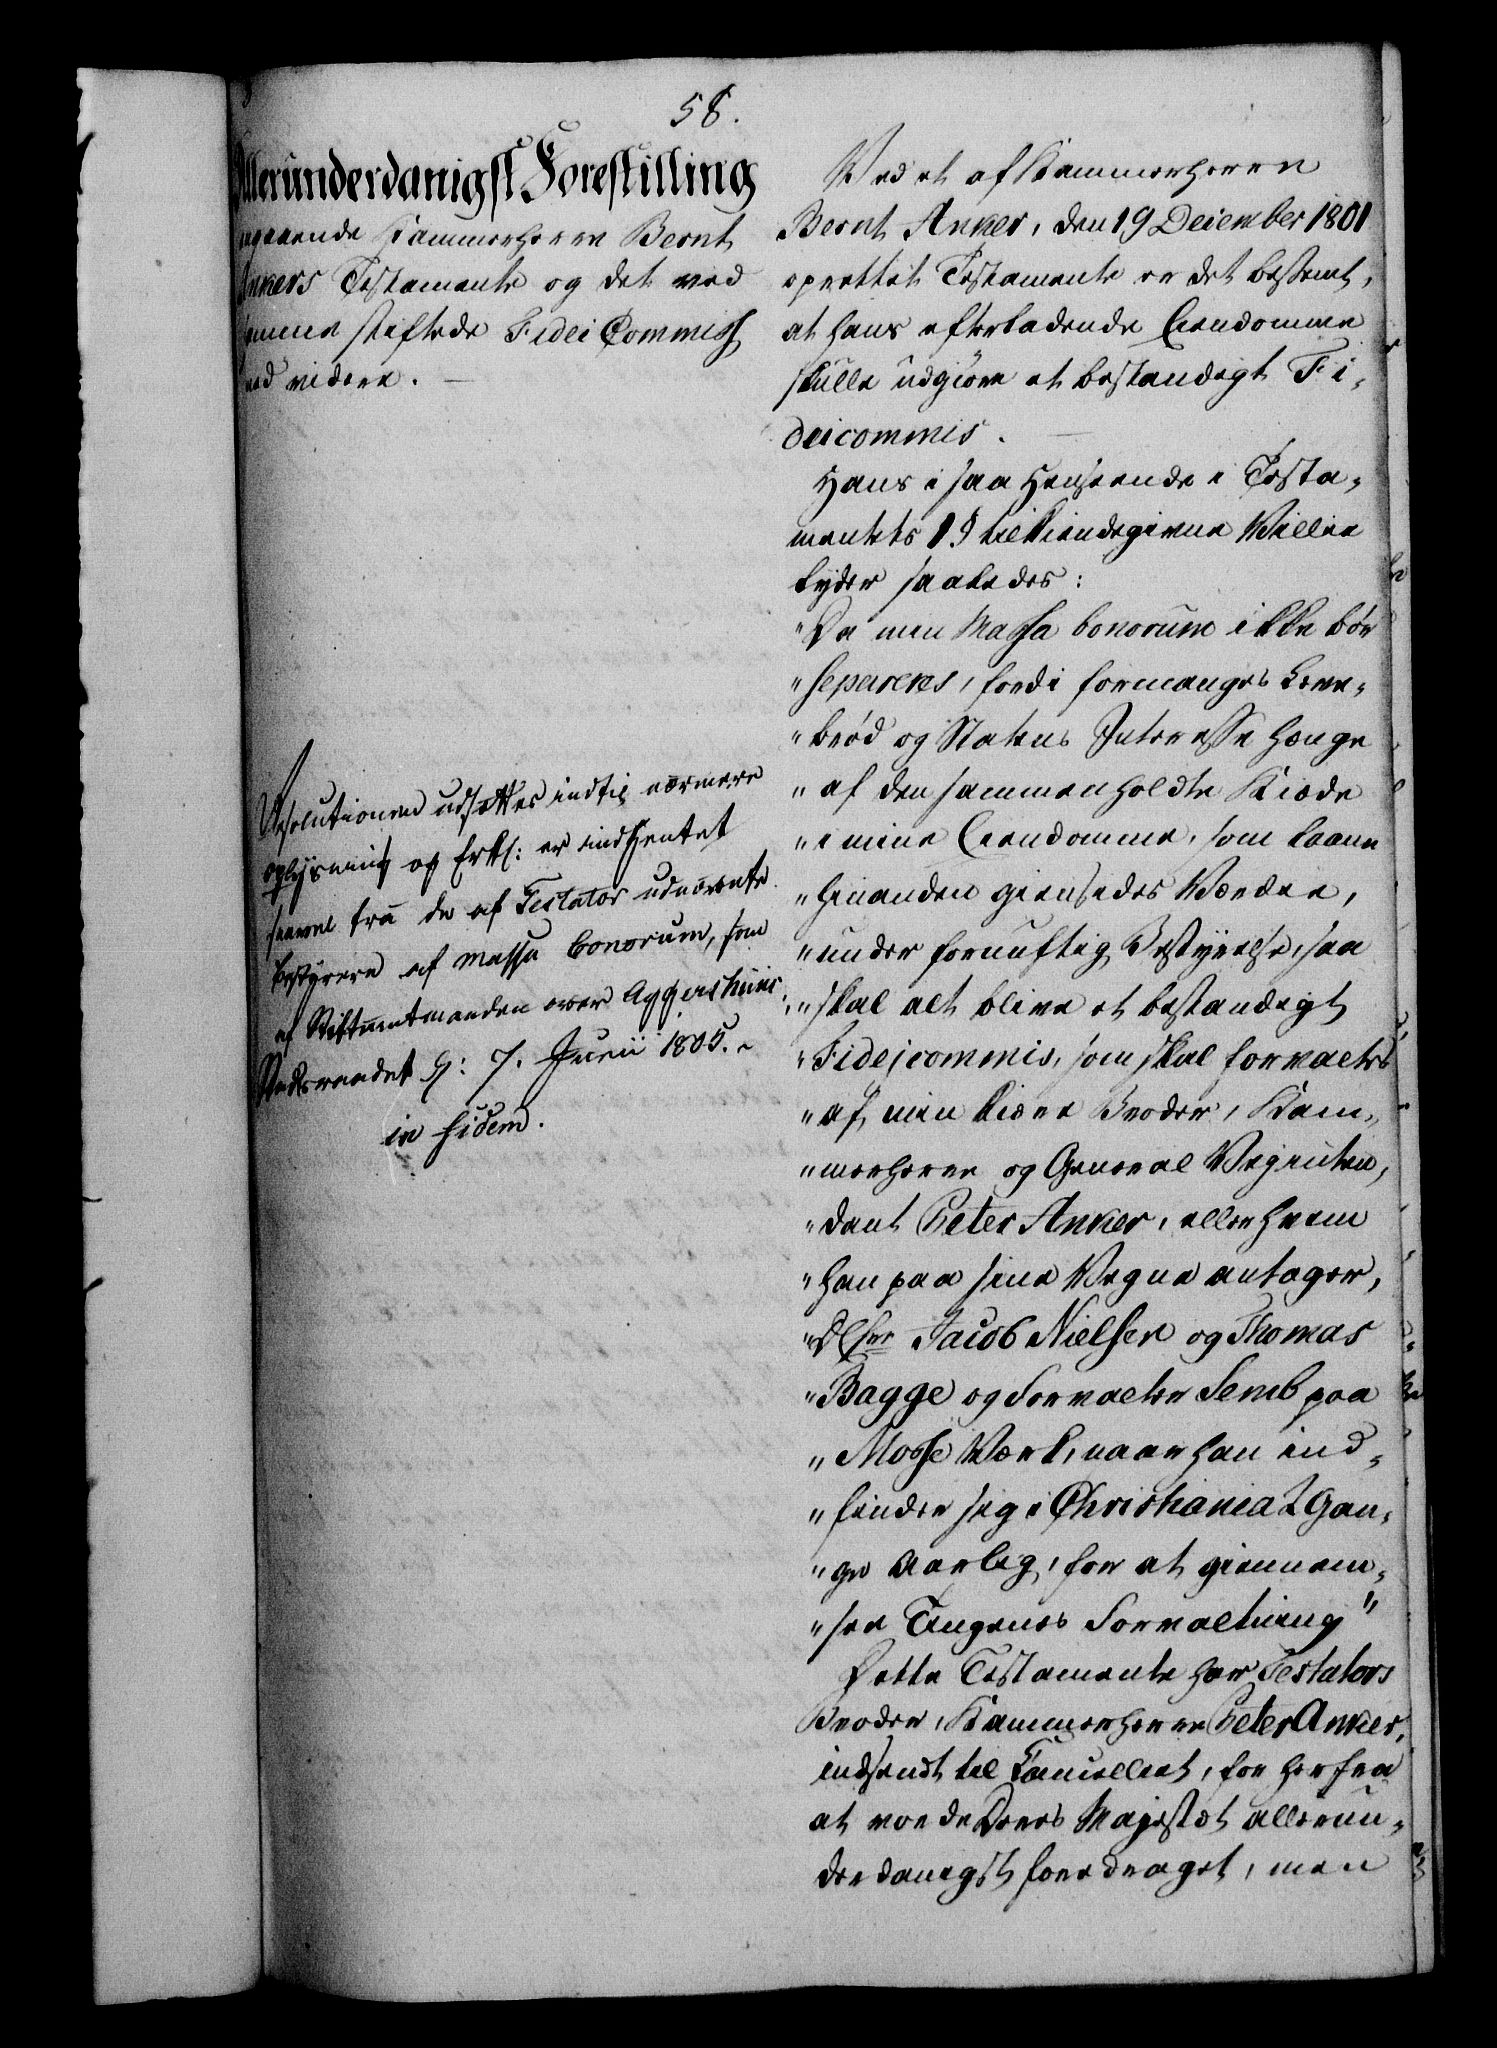 58.
Allerunderdanigst Forestilling
angaaende Kammerherre Bernt
Ankers Testamente og det ved
samme stiftede Fidei Commiss
med videre.
Resolutionen udsættes indtil nærmere
oplysning og Erkl: er indhentet
saavel fra de af Testator udnævnte
bestyrere af massa bonorum, som
af Stiftamtmanden over Aggershuus.
Statsraadet d: 7. Junii 1805.
in fidem.
Ved et af Kammerherre
Bernt Anker, den 19 December 1801
oprettet Testamente er det bestemt,
at hans efterladende Eiendomme
skulle udgiøre et bestandigt Fi-
deicommis.
Hans i saa Henseende i Testa-
mentets 1 § tilkiendegivne Villie
lyder saaledes:
"Da min Massa bonorum ikke bør
"separeres, fordi formanges Leve-
"brød og Statens Interesse hænge
"af den sammenholdte Kiæde
"i mine Eiendomme, som laane
"hinanden giensides Værdie,
"under fornuftig Bestyrelse, saa
"skal alt blive et bestandigt
"Fideicommis, som skal forvaltes
"af min kiære Broder, Kam-
"merherre og General Veginten-
"dant Peter Anker, eller hvem
"han paa sine Vegne antager,
"Jacob Nielsen og Thomas
"Bagge og Forvalter Semb paa
"Mosse Værk, naar han ind-
"finder sig i Christiania 2 Gan-
"ge Aarlig, for at giennem-
"see Tingenes Forvaltning"
Dette Testamente har Testators
Broder, Kammerherre Peter Anker,
indsendt til Cancelliet, for herfra
at vorde Deres Majestæt allerun-
derdanigst foredraget, men